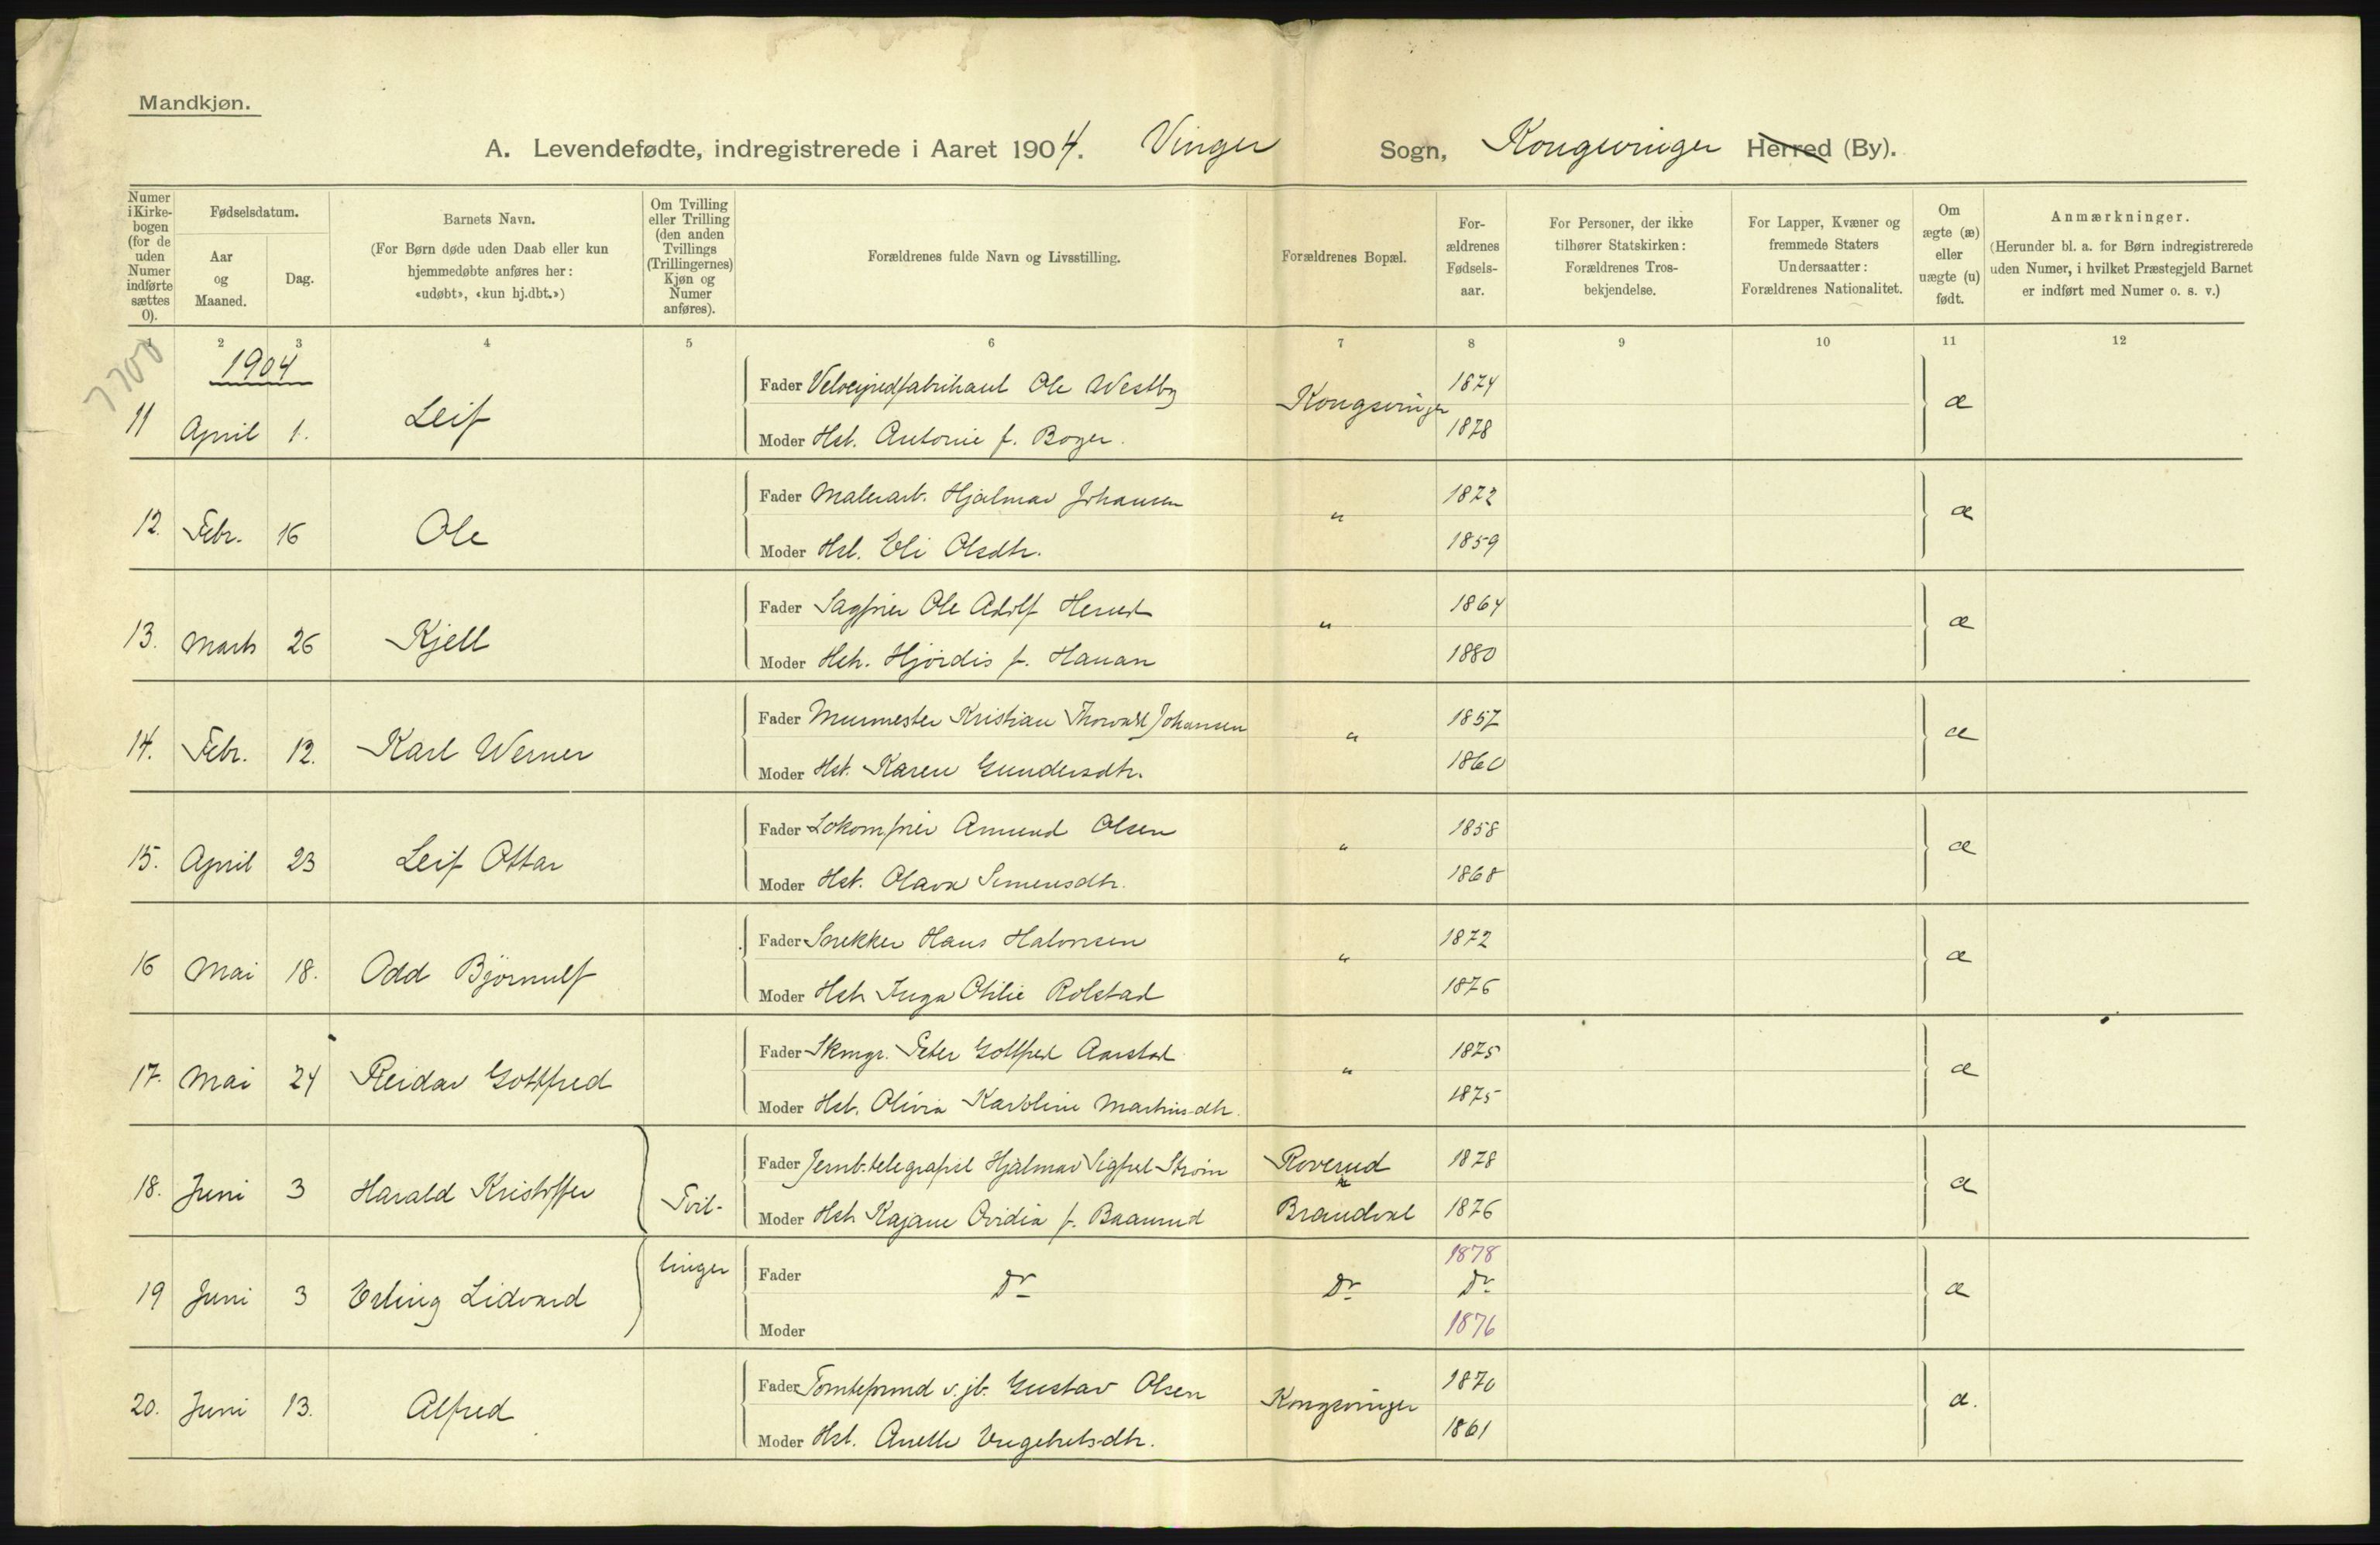 Mandkjøn.
A. Levendefødte, indregistrerede i Aaret 1904. Vinger Sogn, Kongsvinger Herred (By).
Numer i Kirkebogen (for de uden Numer indførte sættes 0).
Fødselsdatum.
Aar og Maaned.
Dag.
Barnets Navn.
(For Børn døde uden Daab eller kun hjemmedøbte anføres her: «udøbt», «kun hj.dbt.»)
Om Tvilling eller Trilling (den anden Tvillings (Trillingernes) Kjøn og Numer anføres).
Forældrenes fulde Navn og Livsstilling.
Forældrenes Bopæl.
Forældrenes Fødselsaar.
For Personer, der ikke tilhører Statskirken: Forældrenes Trosbekjendelse.
For Lapper, Kvæner og fremmede Staters Undersaatter: Forældrenes Nationalitet.
Om ægte (æ) eller uægte (u) født.
Anmærkninger.
(Herunder bl. a. for Børn indregistrerede uden Numer, i hvilket Præstegjeld Barnet er indført med Numer o. s. v.)
1 2 3 4 5 6 7 8 9 10 11 12
7700
1904
Fader Velocipedfabrikant Ole Westby 1874
11 April 1. Leif Kongsvinger æ
Moder Hst. Antonie f. Boger. 1878
Fader Malerarb. Hjalmar Johansen 1872
12. Febr. 16 Ole " æ
Moder Hst. Eli Olsdtr. 1859
Fader Sagfører Ole Adolf Herud 1864
13. Marts 26 Kjell " æ
Moder Hst. Hjördis f. Hauan 1880
Fader Murmester Kristian Thorvald Johansen 1857
14. Febr. 12. Karl Werner " æ
Moder Hst. Karen Gundersdtr. 1860
Fader Lokom.fører Amund Olsen 1858
15. April 23 Leif Ottar " æ
Moder Hst. Olava Simensdtr. 1868
Fader Snekker Hans Halvorsen 1872
16 Mai 18. Odd Björnulf " æ
Moder Hst. Inga Otilie Rolstad 1876
Fader Skmgr. Peter Gottfred Aarstad 1875
17. Mai 24 Reidar Gottfred " æ
Moder Hst. Olivia Karoline Martinsdtr. 1875
Fader Jernb.telegrafist Hjalmar Sigfred Ström Roverud 1878
18. Juni 3 Harald Kristoffer Tvil- æ
Moder Hst. Kajane Ovidia f. Baanrud Brandval 1876
1878
19 Juni 3 Erling Lidvard linger Fader Do Do Do æ
Moder 1876
Fader Tomteformd v. jb. Gustav Olsen 1870
20. Juni 13. Alfred Kongsvinger æ.
Moder Hst. Anette Engebretsdtr. 1861